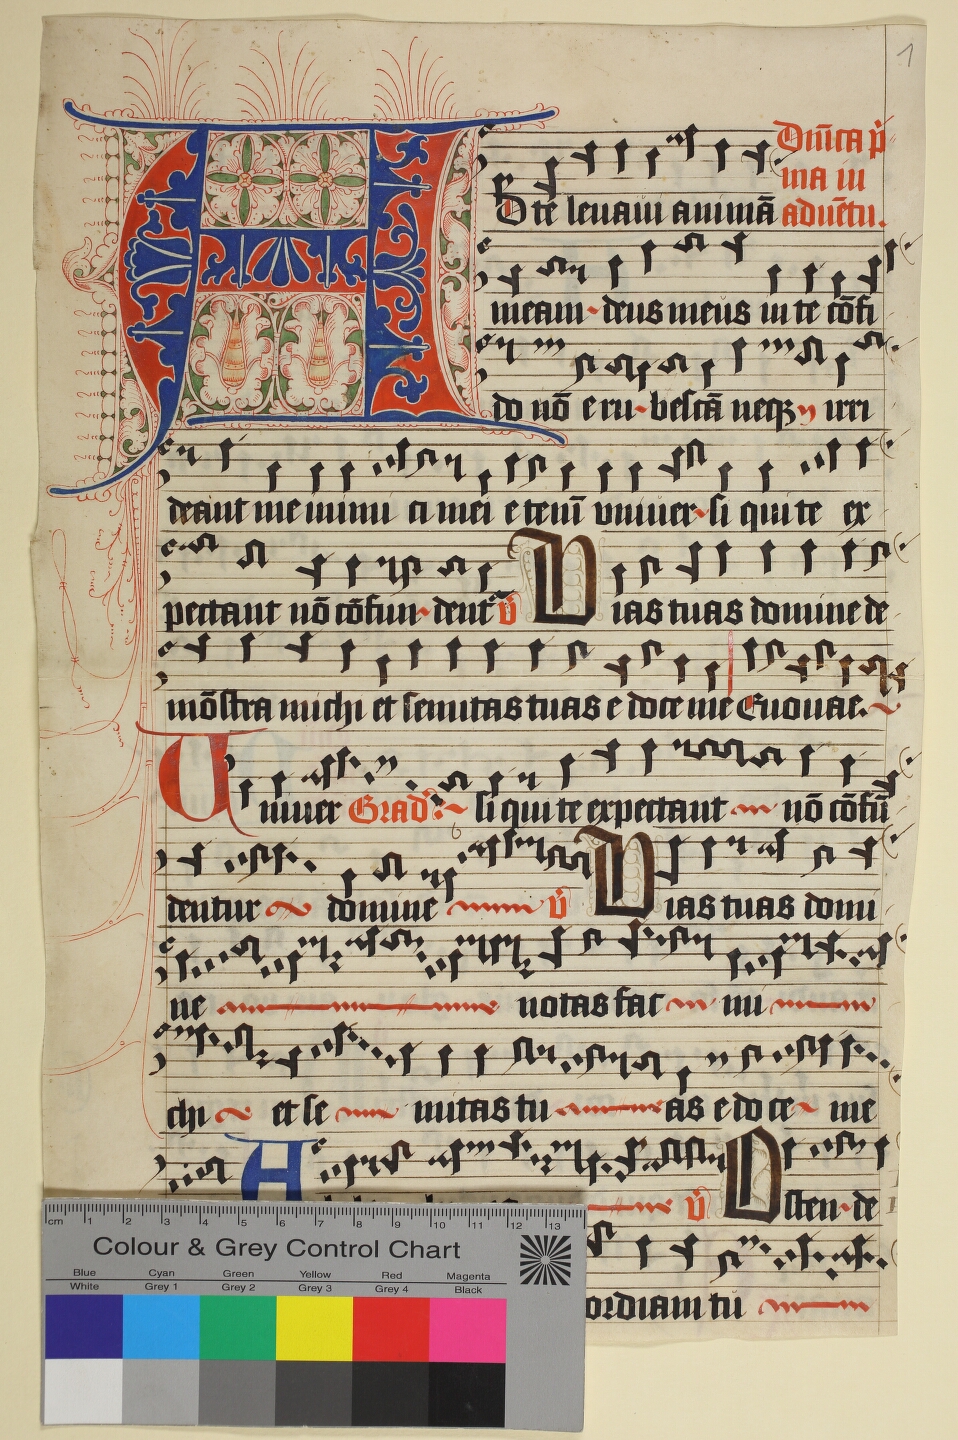 1
A
Dn̄ica p̄
ma in
aduētu.
D te leuaui animā
meam deus meus in te cōfi
do nō eru bescā neqȝ irri
deant me inimi ci mei etenī vniuer si qui te ex
pectant nō cōfun dent℣ Vias tuas domine de
mōstra michi et semitas tuas edoce me Euouae.
Vniuer Grad̄ si qui te expectant nō cōfū
dentur domine ℣ Vias tuas domi
ne notas fac mi
chi et se mitas tu as edoce me
A ℣ Osten de
ordiam tu
cm 1 2 3 4 5 6 7 8 9 10 11 12 13
Colour & Grey Control Chart
Blue Cyan Green Yellow Red Magenta
White Grey 1 Grey 2 Grey 3 Grey 4 Black